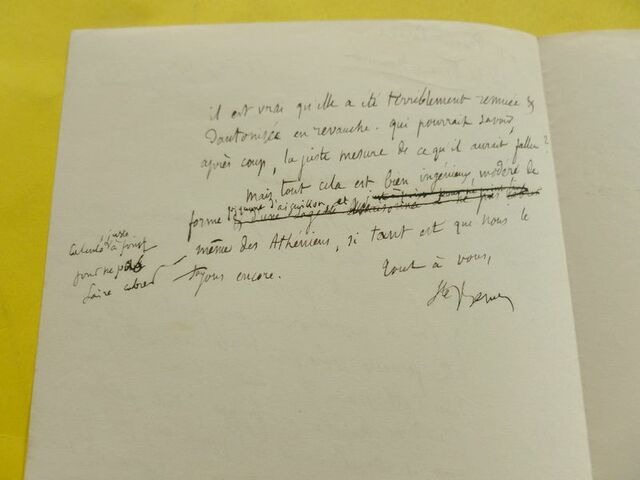 il est vrai qu'elle a été terriblement remuée &
en revanche. qui pourrait savoir,
après coup, la juste mesure de ce qu'il aurait fallu?
mais tout cela est bien ingénieux, modéré de
forme d'aiguillon et
même des Athéniens, si tant est que nous le
soyons encore.
tout à vous,
juste
calculé à point
pour ne pas
faire cabrer